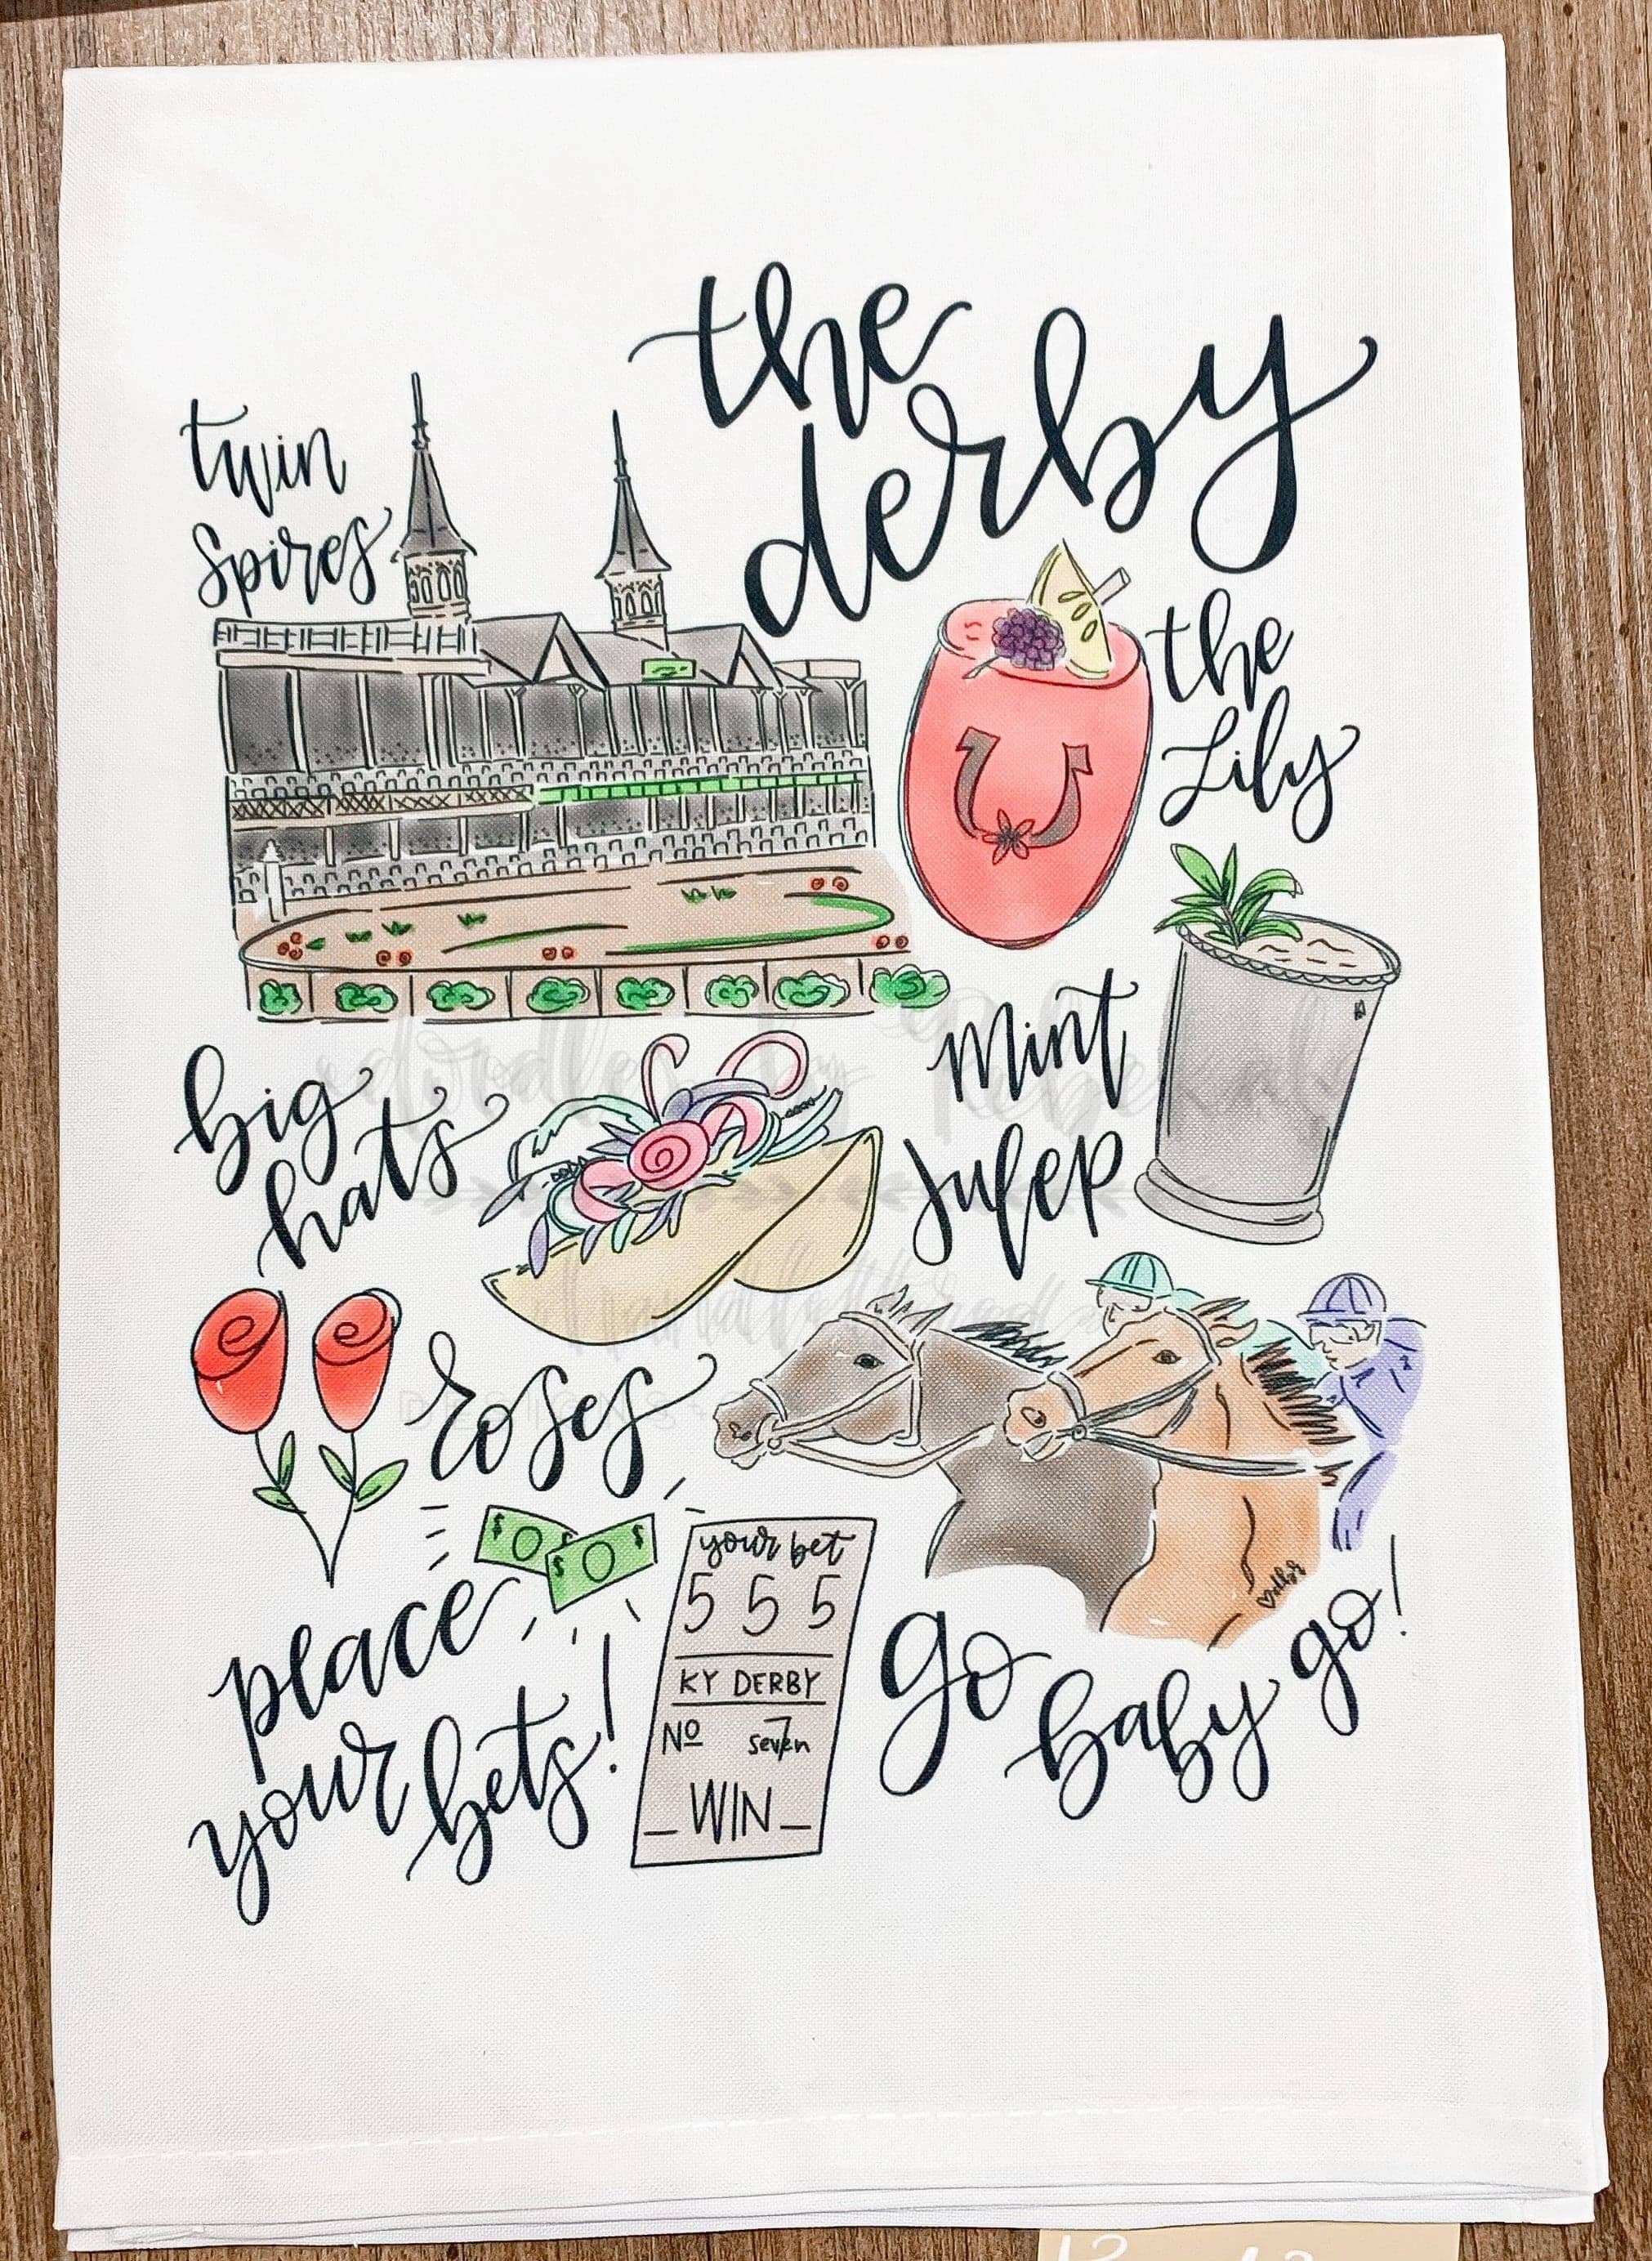 the
derby
twin
spires
the
Lily
mint
julep
big
hats
roses
place
your bets!
your bet
5 5 5
KY DERBY
No 7
seven
_ WIN _
go
baby
go!
doodles by Rebekah